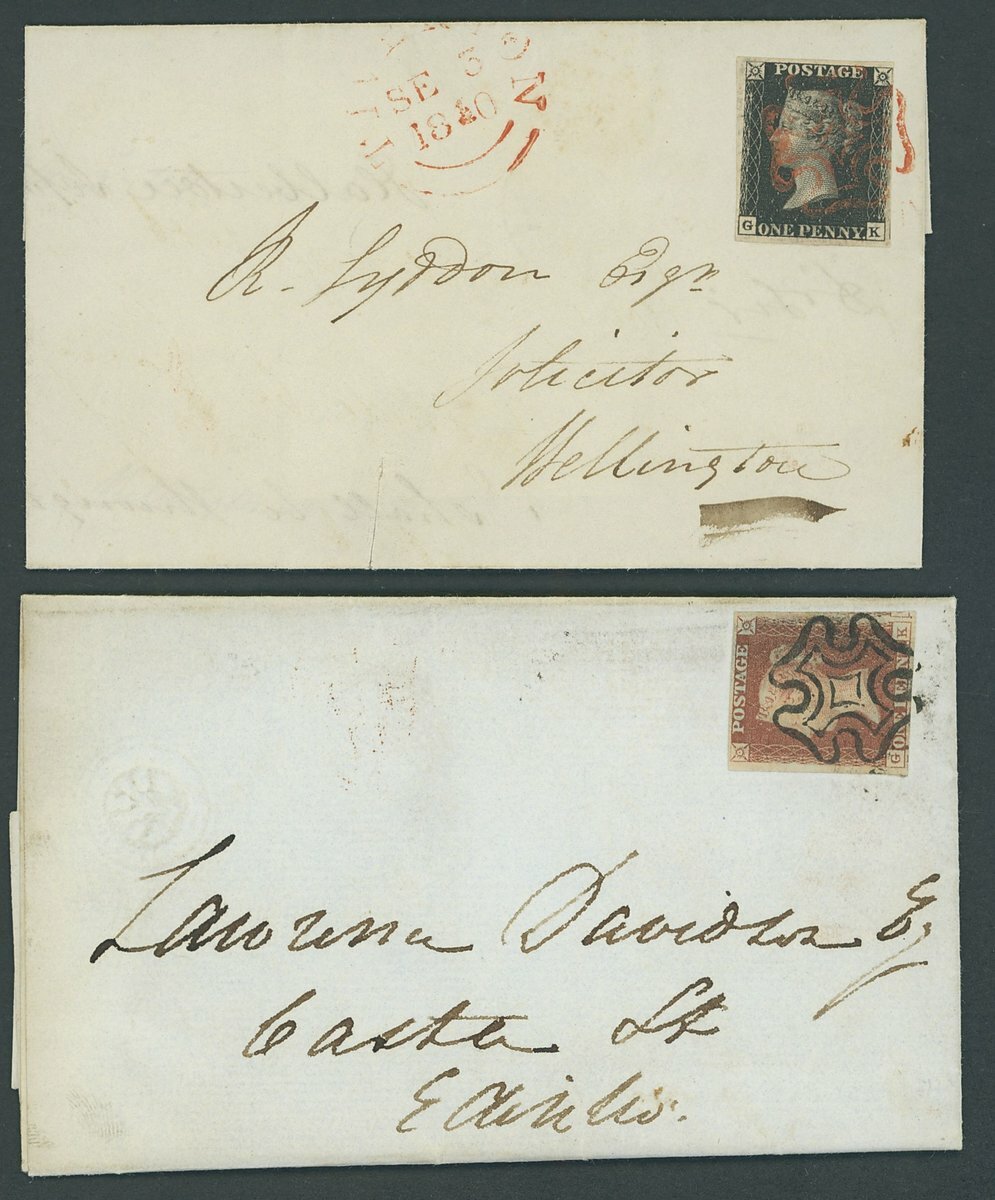 SE 5
1840
POSTAGE
G ONE PENNY K
R. Lyddon Esqr
Solicitor
Wellington
POSTAGE
G ONE PENN K
Lawrence Davidson Esq
Castle St
Edinbr.